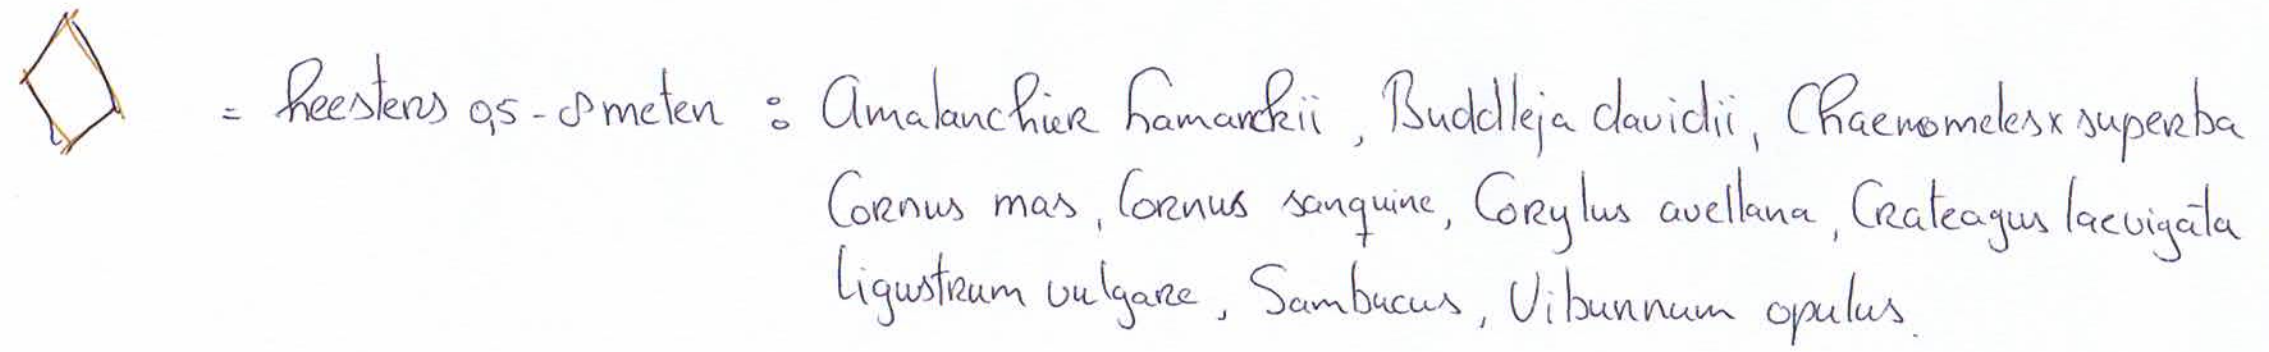 = heesters 0,5 - 8 meter : Amalanchier Lamarckii, Buddleja davidii, Chaenomeles x superba
Cornus mas, Cornus sanguine, Corylus avellana, Crateagus laevigata
Ligustrum vulgare, Sambucus, Viburnnum opulus.